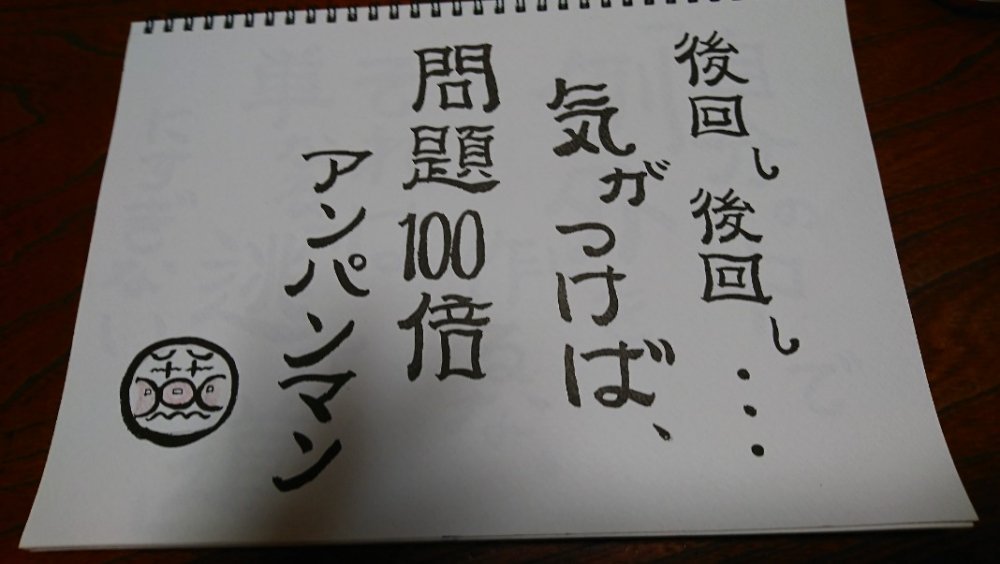 後回し後回し・・・
気がつけば、
問題100倍
アンパンマン